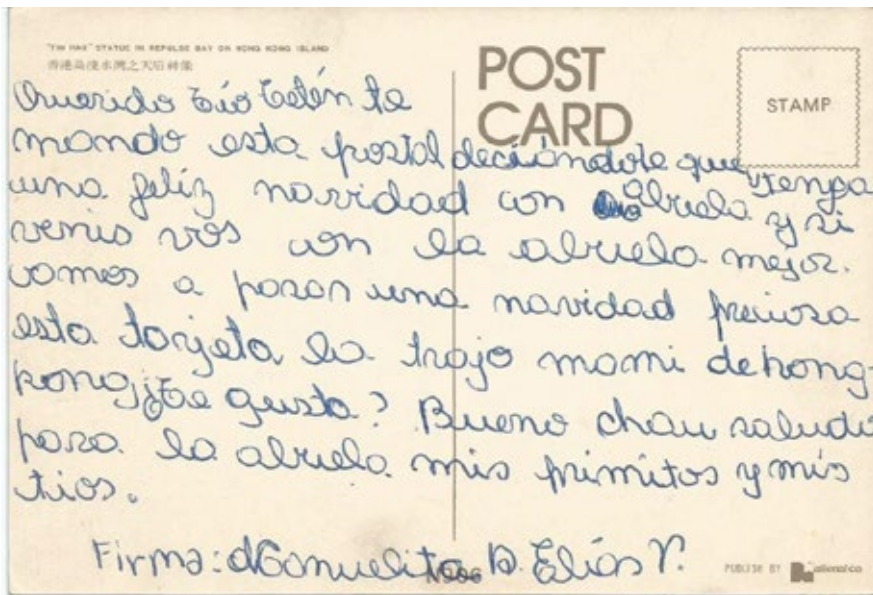 "TIN HAU" STATUE IN REPULSE BAY ON HONG KONG ISLAND
香港島淺水灣之天后神像
POST
CARD
STAMP
Querido tío Catén te
mando esta postal deciándote que tenga
una feliz navidad con abuela y si
venis vos con la abuela mejor.
vamos a pasar una navidad preciosa
esta tarjeta la trajo mami de hong-
kong ¿te gusta? Bueno chau saludo
para la abuela mis primitos y mis
tios.
Firma: Manuelito D. Elías V.
PUBLISH BY National co